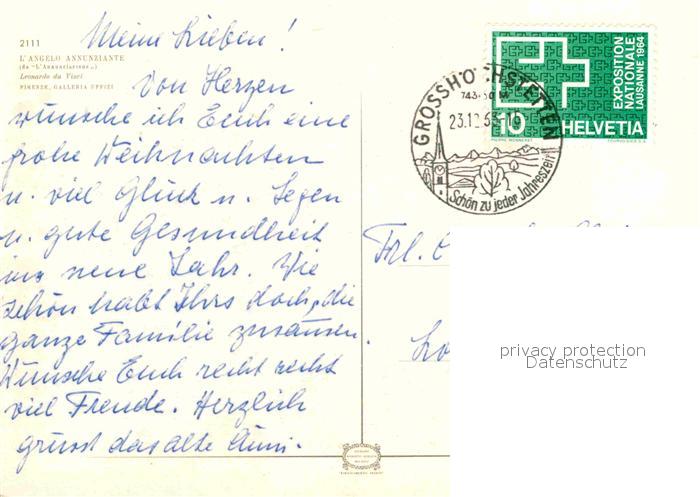 2111
L'ANGELO ANNUNZIANTE
(da "L'Annunciazione")
Leonardo da Vinci
FIRENZE, GALLERIA UFFIZI
Meine Lieben!
Von Herzen
wünsche ich Euch eine
frohe Weihnachten
u. viel Glück u. Segen
u. gute Gesundheit
ins neue Jahr. Wie
schön habt Ihrs doch, die
ganze Familie zusamen.
Wünsche Euch recht recht
viel Freude. Herzlich
grüsst das alte Anni.
GROSSHÖCHSTETTEN
743
23.12.63
Schön zu jeder Jahreszeit
EXPOSITION
NATIONALE
LAUSANNE 1964
10 HELVETIA
Frl.
privacy protection
Datenschutz